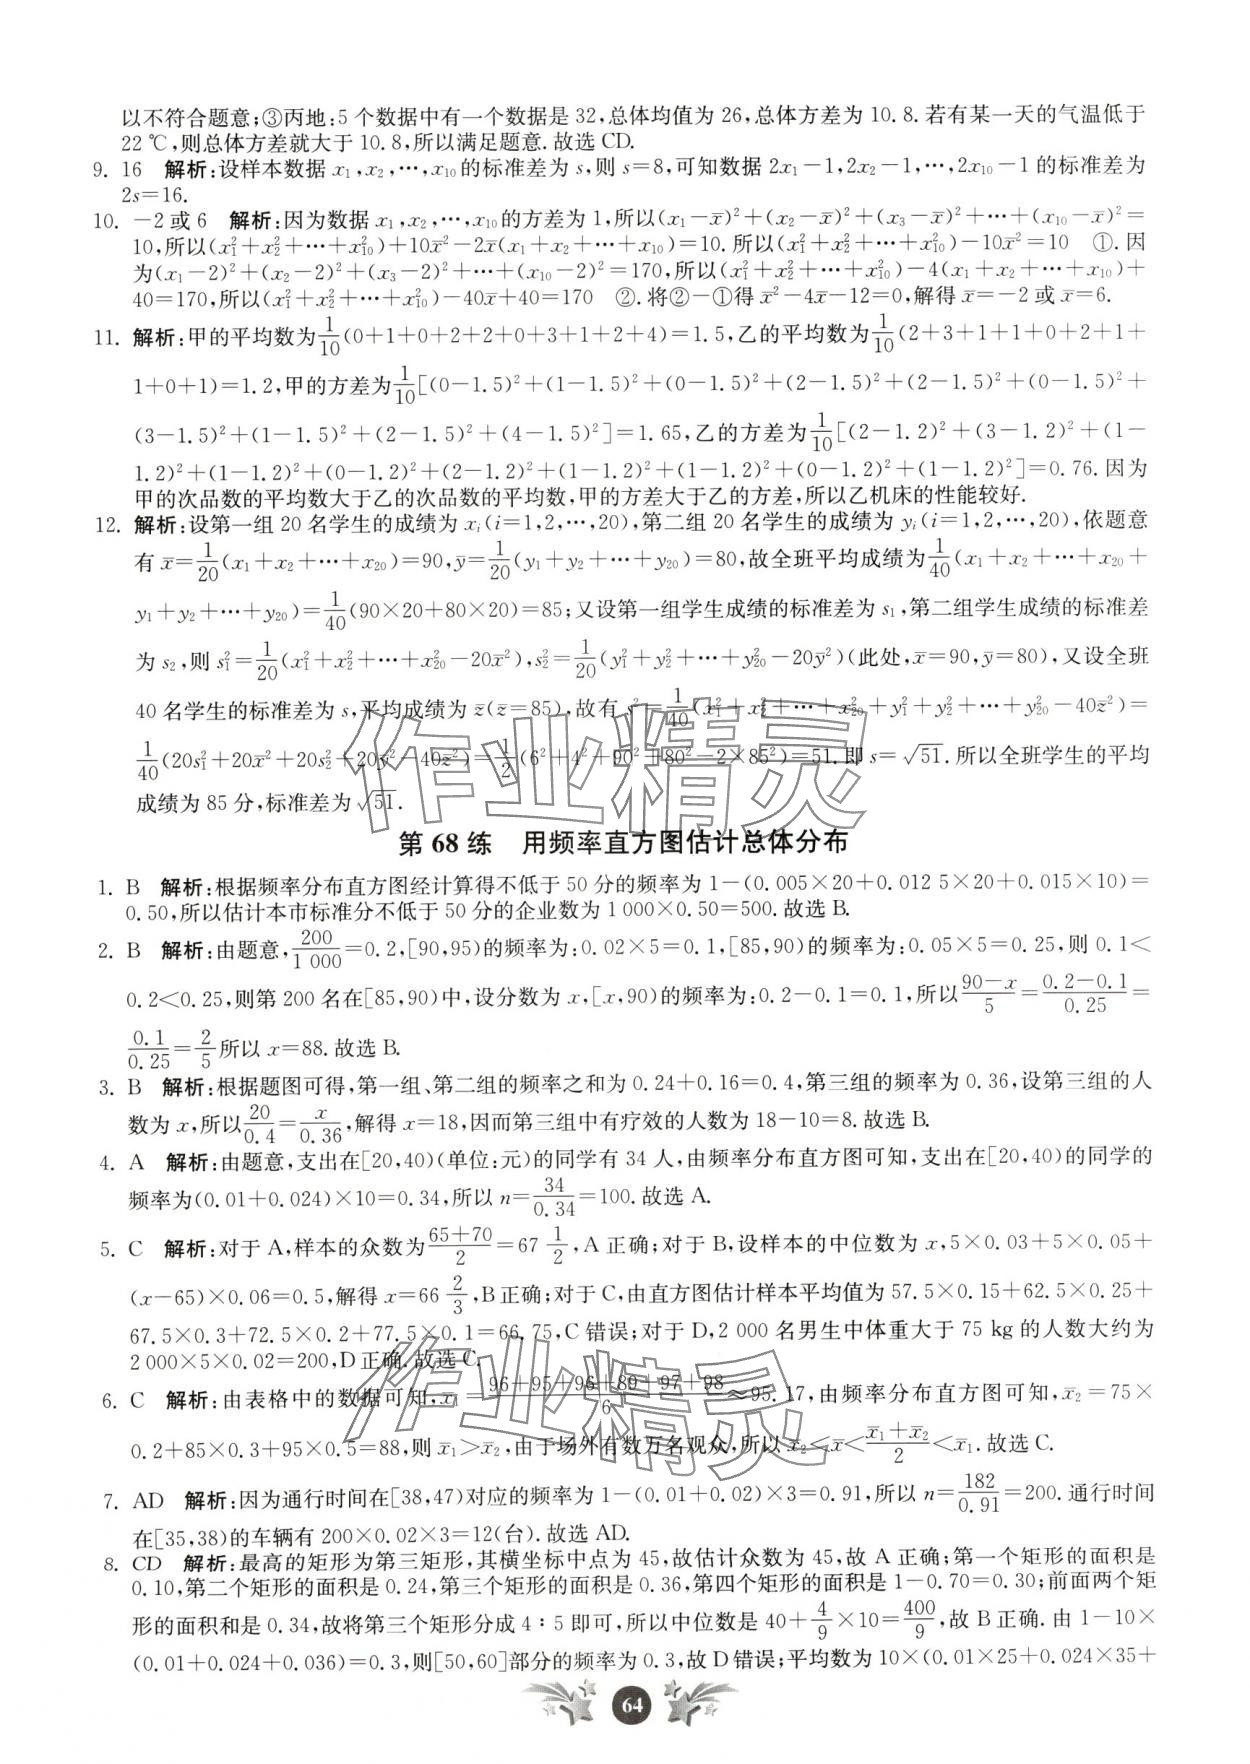 以不符合题意;③丙地:5 个数据中有一个数据是 32,总体均值为 26,总体方差为 10.8.若有某一天的气温低于
22 ℃,则总体方差就大于 10.8,所以满足题意.故选 CD.
9. 16 解析:设样本数据 x₁,x₂,…,x₁₀的标准差为 s,则 s=8,可知数据 2x₁-1,2x₂-1,…,2x₁₀-1 的标准差为
2s=16.
10. -2 或 6 解析:因为数据 x₁,x₂,…,x₁₀的方差为 1,所以(x₁-x̄)²+(x₂-x̄)²+(x₃-x̄)²+…+(x₁₀-x̄)²=
10,所以(x₁²+x₂²+…+x₁₀²)+10x̄²-2x̄(x₁+x₂+…+x₁₀)=10.所以(x₁²+x₂²+…+x₁₀²)-10x̄²=10 ①.因
为(x₁-2)²+(x₂-2)²+(x₃-2)²+…+(x₁₀-2)²=170,所以(x₁²+x₂²+…+x₁₀²)-4(x₁+x₂+…+x₁₀)+
40=170,所以(x₁²+x₂²+…+x₁₀²)-40x̄+40=170 ②.将②-①得 x̄²-4x̄-12=0,解得 x̄=-2 或 x̄=6.
11. 解析:甲的平均数为1/10(0+1+0+2+2+0+3+1+2+4)=1.5,乙的平均数为1/10(2+3+1+1+0+2+1+
1+0+1)=1.2,甲的方差为1/10[(0-1.5)²+(1-1.5)²+(0-1.5)²+(2-1.5)²+(2-1.5)²+(0-1.5)²+
(3-1.5)²+(1-1.5)²+(2-1.5)²+(4-1.5)²]=1.65,乙的方差为1/10[(2-1.2)²+(3-1.2)²+(1-
1.2)²+(1-1.2)²+(0-1.2)²+(2-1.2)²+(1-1.2)²+(1-1.2)²+(0-1.2)²+(1-1.2)²]=0.76.因为
甲的次品数的平均数大于乙的次品数的平均数,甲的方差大于乙的方差,所以乙机床的性能较好.
12. 解析:设第一组 20 名学生的成绩为 xᵢ(i=1,2,…,20),第二组 20 名学生的成绩为 yᵢ(i=1,2,…,20),依题意
有 x̄=1/20(x₁+x₂+…+x₂₀)=90,ȳ=1/20(y₁+y₂+…+y₂₀)=80,故全班平均成绩为1/40(x₁+x₂+…+x₂₀+
y₁+y₂+…+y₂₀)=1/40(90×20+80×20)=85;又设第一组学生成绩的标准差为 s₁,第二组学生成绩的标准差
为 s₂,则 s₁²=1/20(x₁²+x₂²+…+x₂₀²-20x̄²),s₂²=1/20(y₁²+y₂²+…+y₂₀²-20ȳ²)(此处,x̄=90,ȳ=80),又设全班
40 名学生的标准差为 s,平均成绩为 z̄(z̄=85),故有 s²=1/40(x₁²+x₂²+…+x₂₀²+y₁²+y₂²+…+y₂₀²-40z̄²)=
1/40(20s₁²+20x̄²+20s₂²+20ȳ²-40z̄²)=1/2(6²+4²+90²+80²-2×85²)=51.即 s=√51.所以全班学生的平均
成绩为 85 分,标准差为√51.
第 68 练 用频率直方图估计总体分布
1. B 解析:根据频率分布直方图经计算得不低于 50 分的频率为 1-(0.005×20+0.012 5×20+0.015×10)=
0.50,所以估计本市标准分不低于 50 分的企业数为 1 000×0.50=500.故选 B.
2. B 解析:由题意,200/1 000=0.2,[90,95)的频率为:0.02×5=0.1,[85,90)的频率为:0.05×5=0.25,则 0.1<
0.2<0.25,则第 200 名在[85,90)中,设分数为 x,[x,90)的频率为:0.2-0.1=0.1,所以(90-x)/5=(0.2-0.1)/0.25=
0.1/0.25=2/5所以 x=88.故选 B.
3. B 解析:根据题图可得,第一组、第二组的频率之和为 0.24+0.16=0.4,第三组的频率为 0.36,设第三组的人
数为 x,所以20/0.4=x/0.36,解得 x=18,因而第三组中有疗效的人数为 18-10=8.故选 B.
4. A 解析:由题意,支出在[20,40)(单位:元)的同学有 34 人,由频率分布直方图可知,支出在[20,40)的同学的
频率为(0.01+0.024)×10=0.34,所以 n=34/0.34=100.故选 A.
5. C 解析:对于 A,样本的众数为(65+70)/2=67 1/2,A 正确;对于 B,设样本的中位数为 x,5×0.03+5×0.05+
(x-65)×0.06=0.5,解得 x=66 2/3,B正确;对于 C,由直方图估计样本平均值为 57.5×0.15+62.5×0.25+
67.5×0.3+72.5×0.2+77.5×0.1=66.75,C 错误;对于 D,2 000 名男生中体重大于 75 kg 的人数大约为
2 000×5×0.02=200,D 正确.故选 C.
6. C 解析:由表格中的数据可知,x̄₁=(96+95+96+89+97+98)/6≈95.17,由频率分布直方图可知,x̄₂=75×
0.2+85×0.3+95×0.5=88,则 x̄₁>x̄₂,由于场外有数万名观众,所以 x̄₂<x̄<(x̄₁+x̄₂)/2<x̄₁.故选 C.
7. AD 解析:因为通行时间在[38,47)对应的频率为 1-(0.01+0.02)×3=0.91,所以 n=182/0.91=200.通行时间
在[35,38)的车辆有 200×0.02×3=12(台).故选 AD.
8. CD 解析:最高的矩形为第三矩形,其横坐标中点为 45,故估计众数为 45,故 A 正确;第一个矩形的面积是
0.10,第二个矩形的面积是 0.24,第三个矩形的面积是 0.36,第四个矩形的面积是 1-0.70=0.30;前面两个矩
形的面积和是 0.34,故将第三个矩形分成 4∶5 即可,所以中位数是 40+4/9×10=400/9,故 B 正确.由 1-10×
(0.01+0.024+0.036)=0.3,则[50,60]部分的频率为 0.3,故 D 错误;平均数为 10×(0.01×25+0.024×35+
64
作业精灵
作业精灵